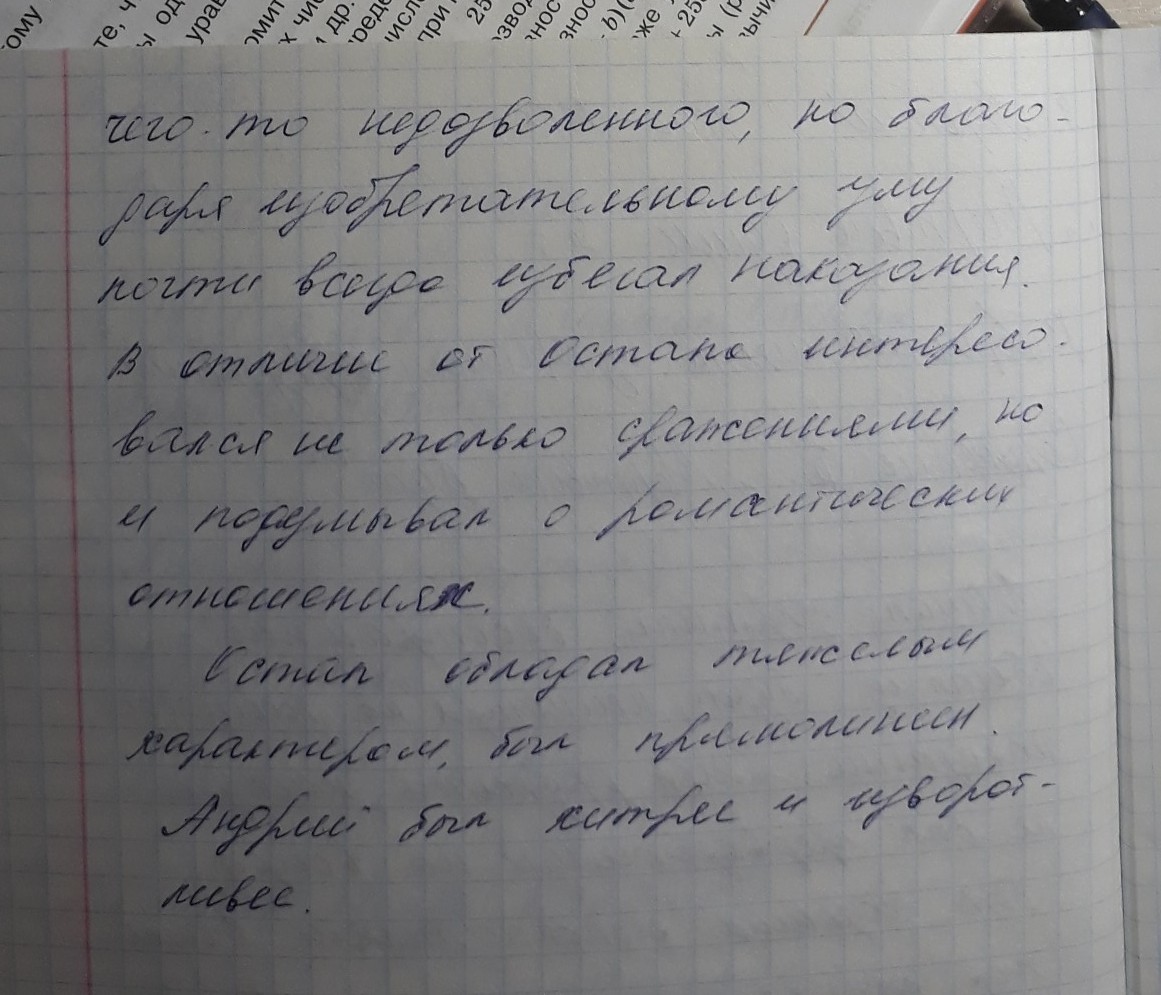 чего-то недозволенного, но благо-
даря изобретательному уму
почти всегда избегал наказания.
В отличие от Остапа интересо-
вался не только сражениями, но
и подумывал о романтических
отношениях.
Остап обладал тяжелым
характером, был прямолинеен.
Андрий был хитрее и изворот-
ливее.